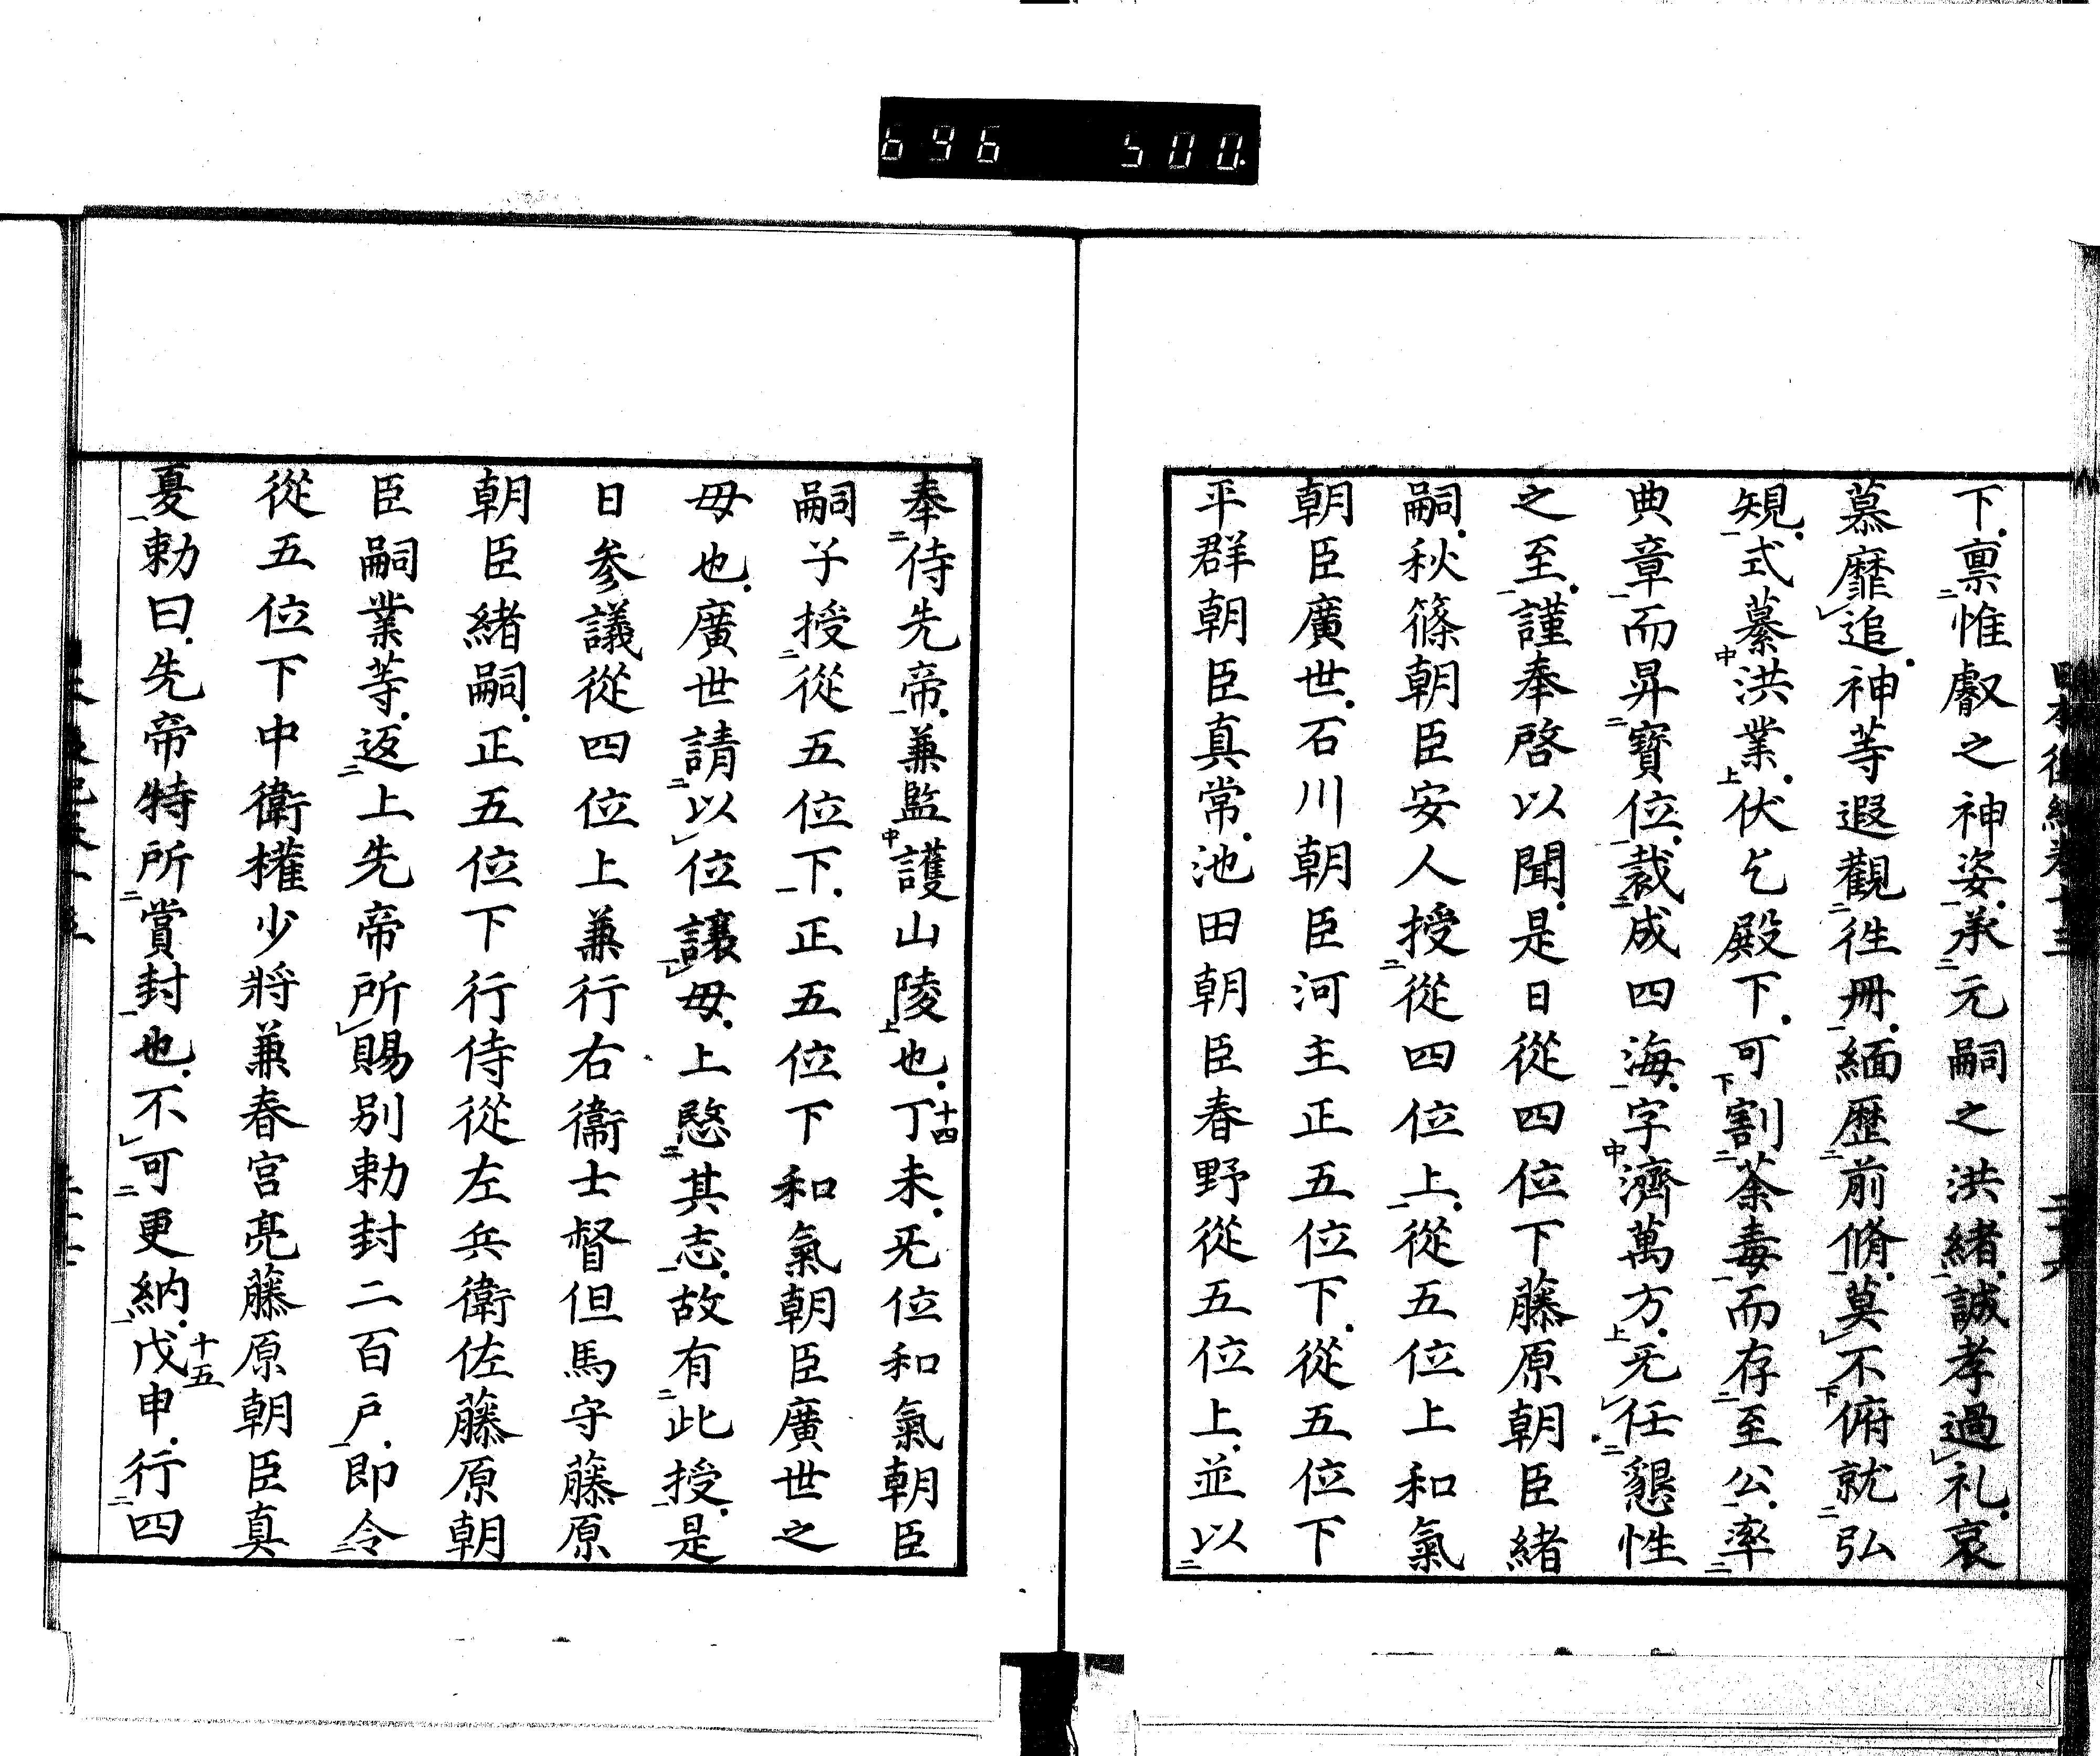 696 500.
下禀惟叡之神姿承元嗣之洪緒誠孝過礼哀
慕靡追神等遐觀徃冊緬歷前脩莫不俯就弘
䂓式纂洪業伏乞殿下可割荼毒而存至公率
典章而昇寶位裁成四海字濟萬方无任懇性
之至謹奉啓以聞是日從四位下藤原朝臣緒
嗣秋篠朝臣安人授從四位上從五位上和氣
朝臣廣世石川朝臣河主正五位下從五位下
平群朝臣真常池田朝臣春野從五位上並以
奉侍先帝兼監護山陵也十四丁未无位和氣朝臣
嗣子授從五位下正五位下和氣朝臣廣世之
母也廣世請以位讓母上愍其志故有此授是
日參議從四位上兼行右衞士督但馬守藤原
朝臣緒嗣正五位下行侍從左兵衛佐藤原朝
臣嗣業等返上先帝所賜別勅封二百戶即令
從五位下中衛權少將兼春宮亮藤原朝臣真
夏勅曰先帝特所賞封也不可更納十五戊申行四